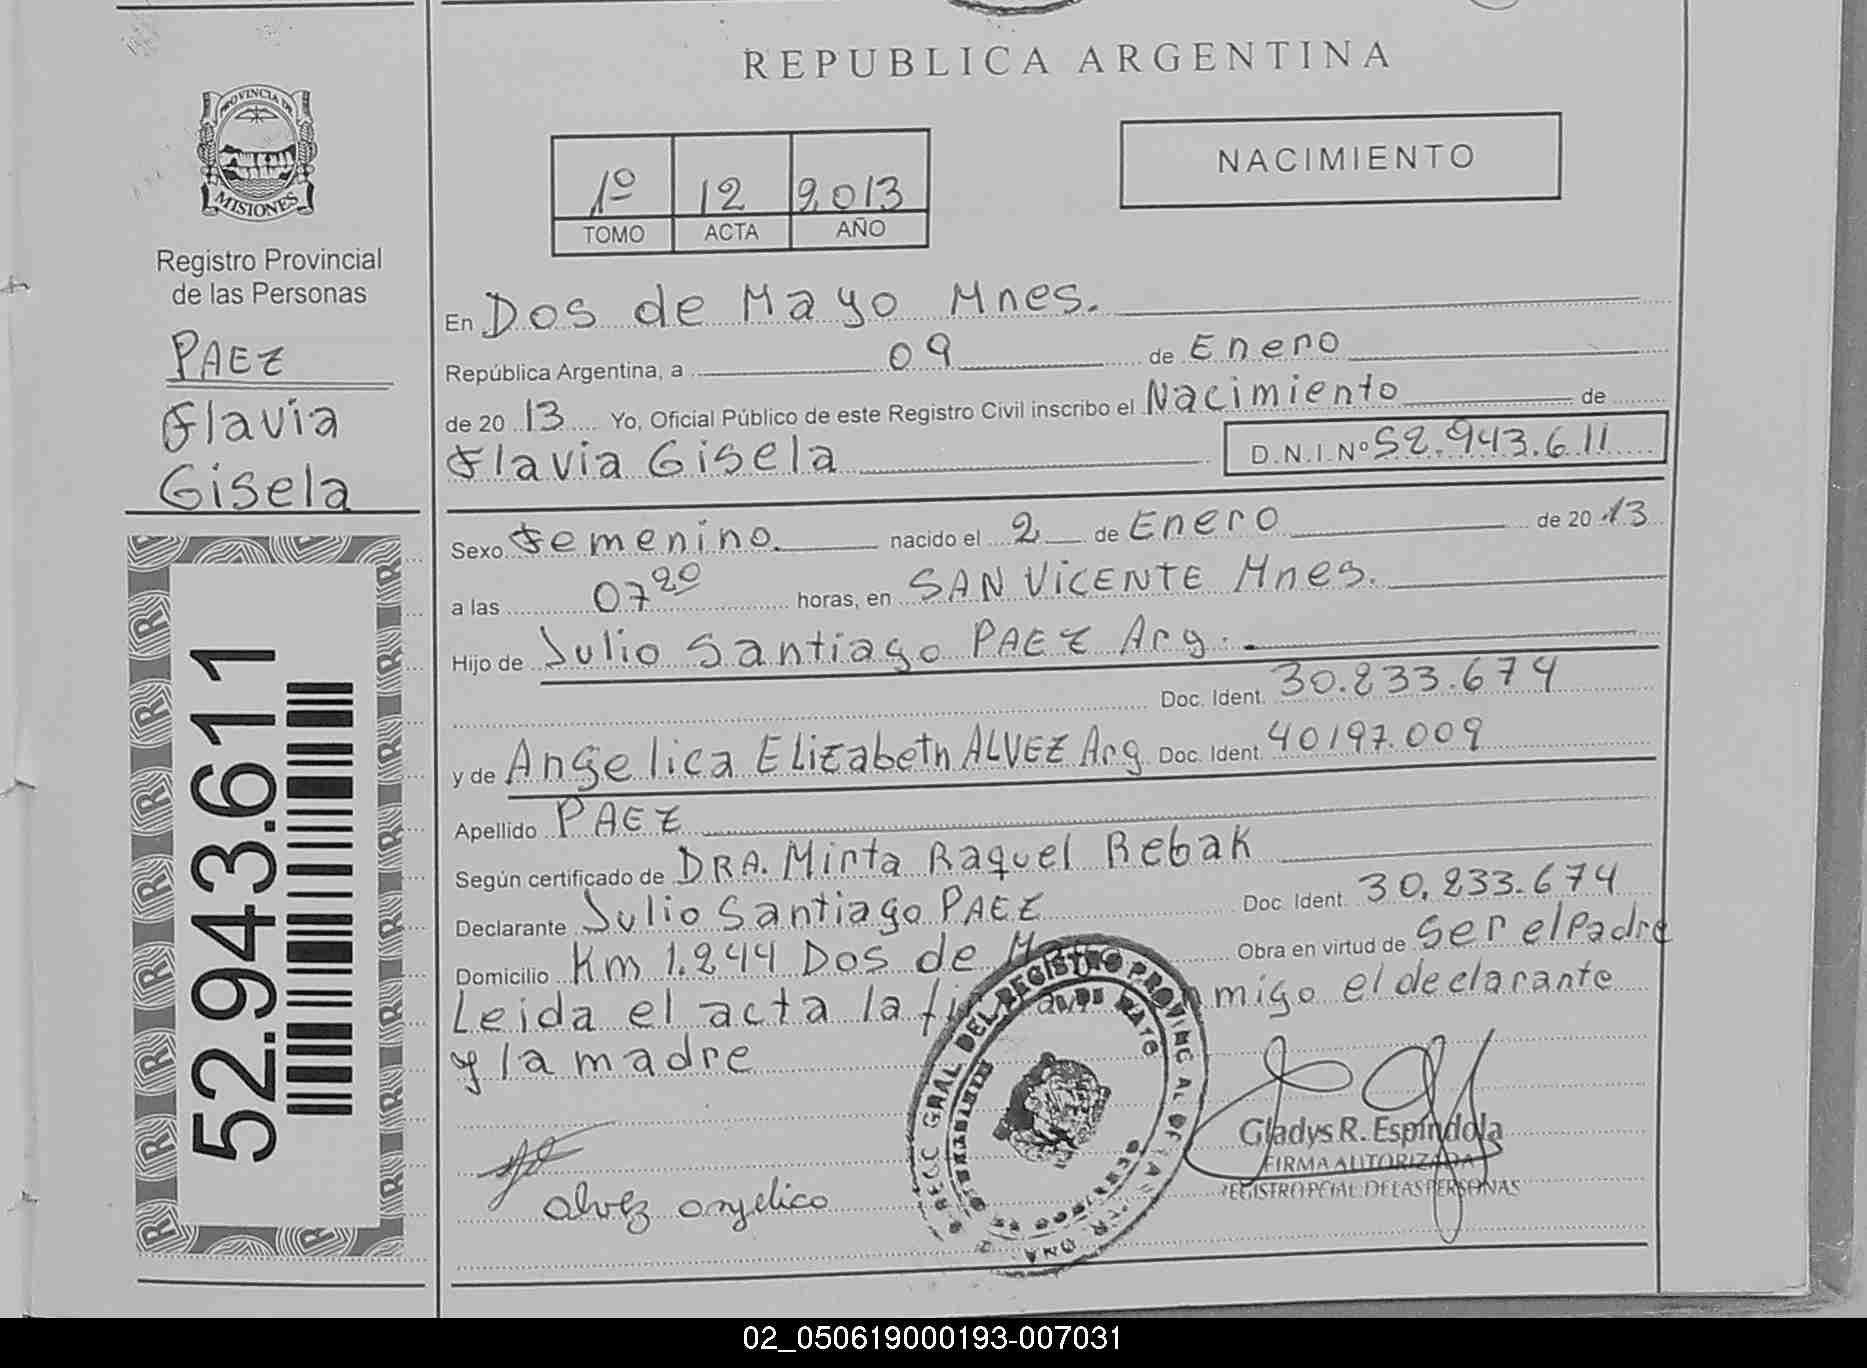 REPUBLICA ARGENTINA
PROVINCIA DE
MISIONES
Registro Provincial
de las Personas
PAEZ
Flavia
Gisela
52.943.611
1º 12 2013
TOMO ACTA AÑO
NACIMIENTO
En Dos de Mayo Mnes.
República Argentina, a 09 de Enero
de 2013 Yo, Oficial Público de este Registro Civil inscribo el Nacimiento de
Flavia Gisela D.N.I.Nº 52.943.611
Sexo Femenino nacido el 2 de Enero de 2013
a las 07 20 horas, en SAN VICENTE Mnes.
Hijo de Julio Santiago PAEZ Arg.
Doc. Ident. 30.233.674
y de Angelica Elizabeth ALVEZ Arg. Doc. Ident. 40197.009
Apellido PAEZ
Según certificado de DRA. Mirta Raquel Rebak
Declarante Julio Santiago PAEZ Doc. Ident. 30.233.674
Domicilio Km 1.244 Dos de Obra en virtud de Ser el Padre
Leida el acta la migo el declarante
y la madre
Alvez Angelica
DEL REGISTRO PROVINCIAL DE
DOS DE MAYO
Gladys R. Espíndola
FIRMA AUTORIZADA
REGISTRO PCIAL. DE LAS PERSONAS
02_050619000193-007031